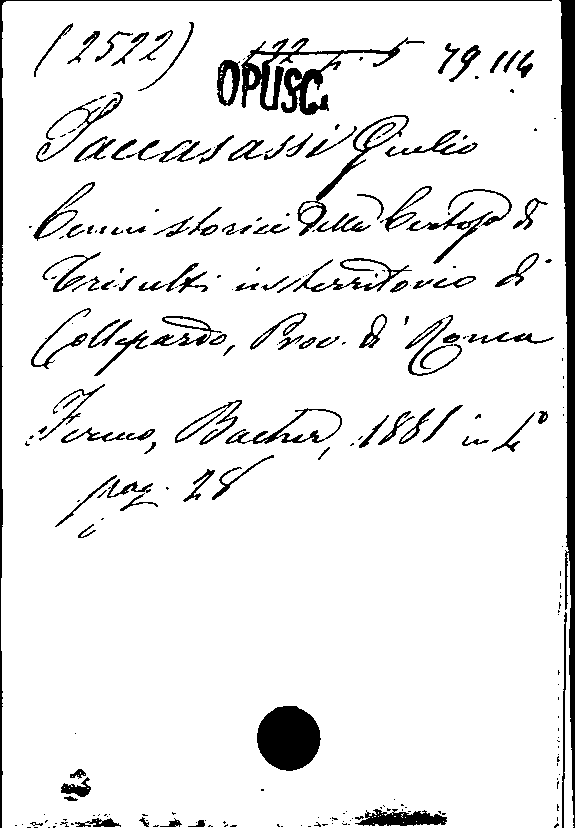 (2522) 122 f. 5 79.114
OPUSC.
Paccasassi Giulio
Cenni storici della Certosa di
Trisulti in territorio di
Collepardo, Prov. di Roma
Fermo, Bacher, 1881 in 4°
pag. 28